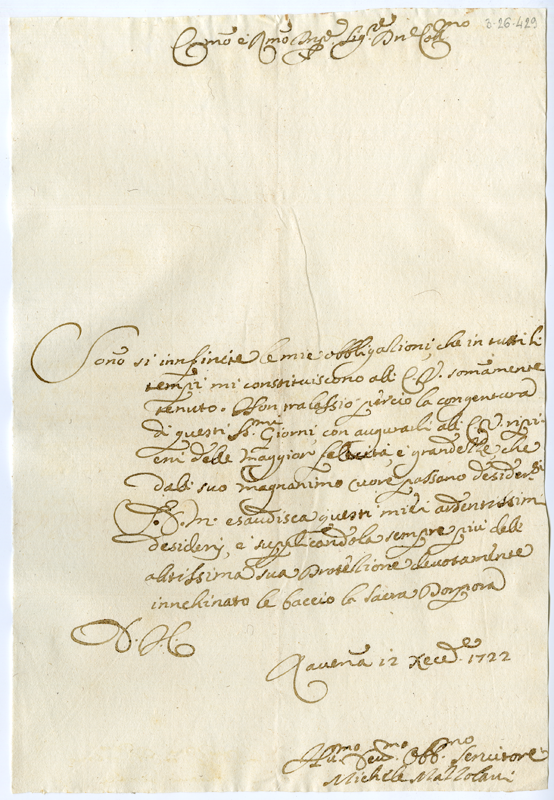 3-26-429
Emo e Rmo Sig.re Sig.re Pne Colmo
Sono si innfinite le mie obbligazioni, che in tutti li
tempi mi constituiscono all E V. somamente
tenuto. Non tralassio perciò la congentura
di questi Ssmi Giorni con augurali all E V. ripi-
eni delle maggiori felicità, e grandezze che
dall suo magnanimo cuore possano desider.si
esaudisca questi miei ardentissimi
desiderij, e supplicandola sempre più delle
altissima sua Protezione devotamente
innchinato le baccio la Sacra Porpora
D. V. E.
Ravena 12 Xecē. 1722
Hu.mo Deu.mo Obb.mo Servitore
Michele Mazzolani